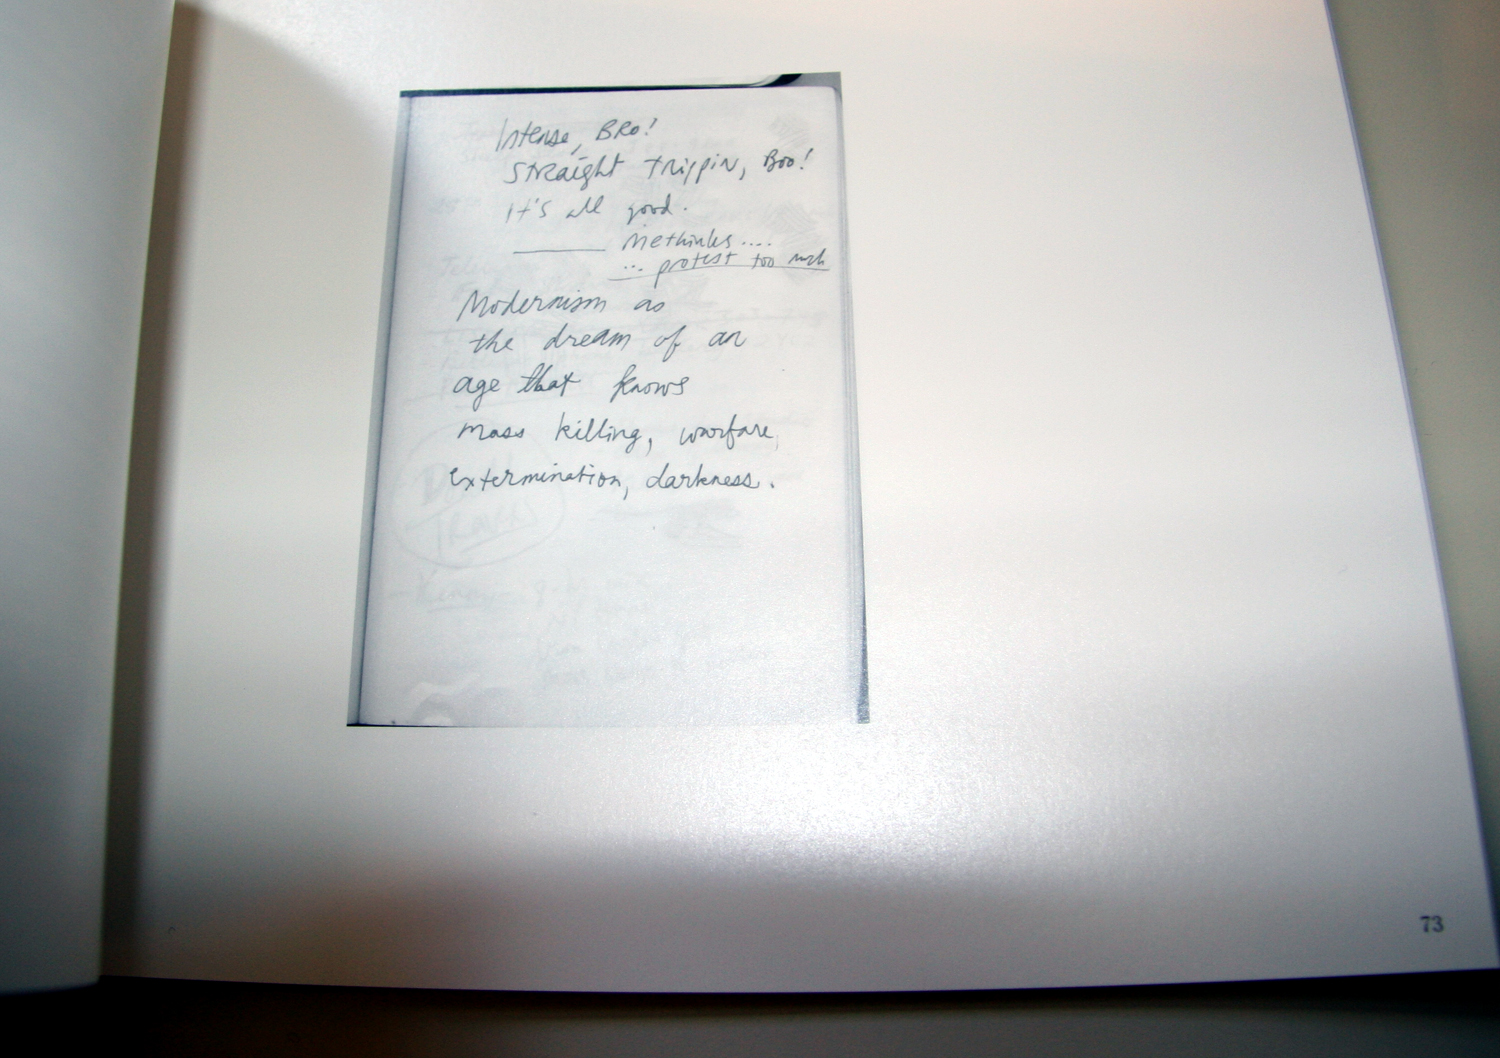 Intense, BRO!
Straight Trippin, Boo!
It's all good.
_______ Methinks....
... protest too much
Modernism as
the dream of an
age that knows
mass killing, warfare,
extermination, darkness.
73